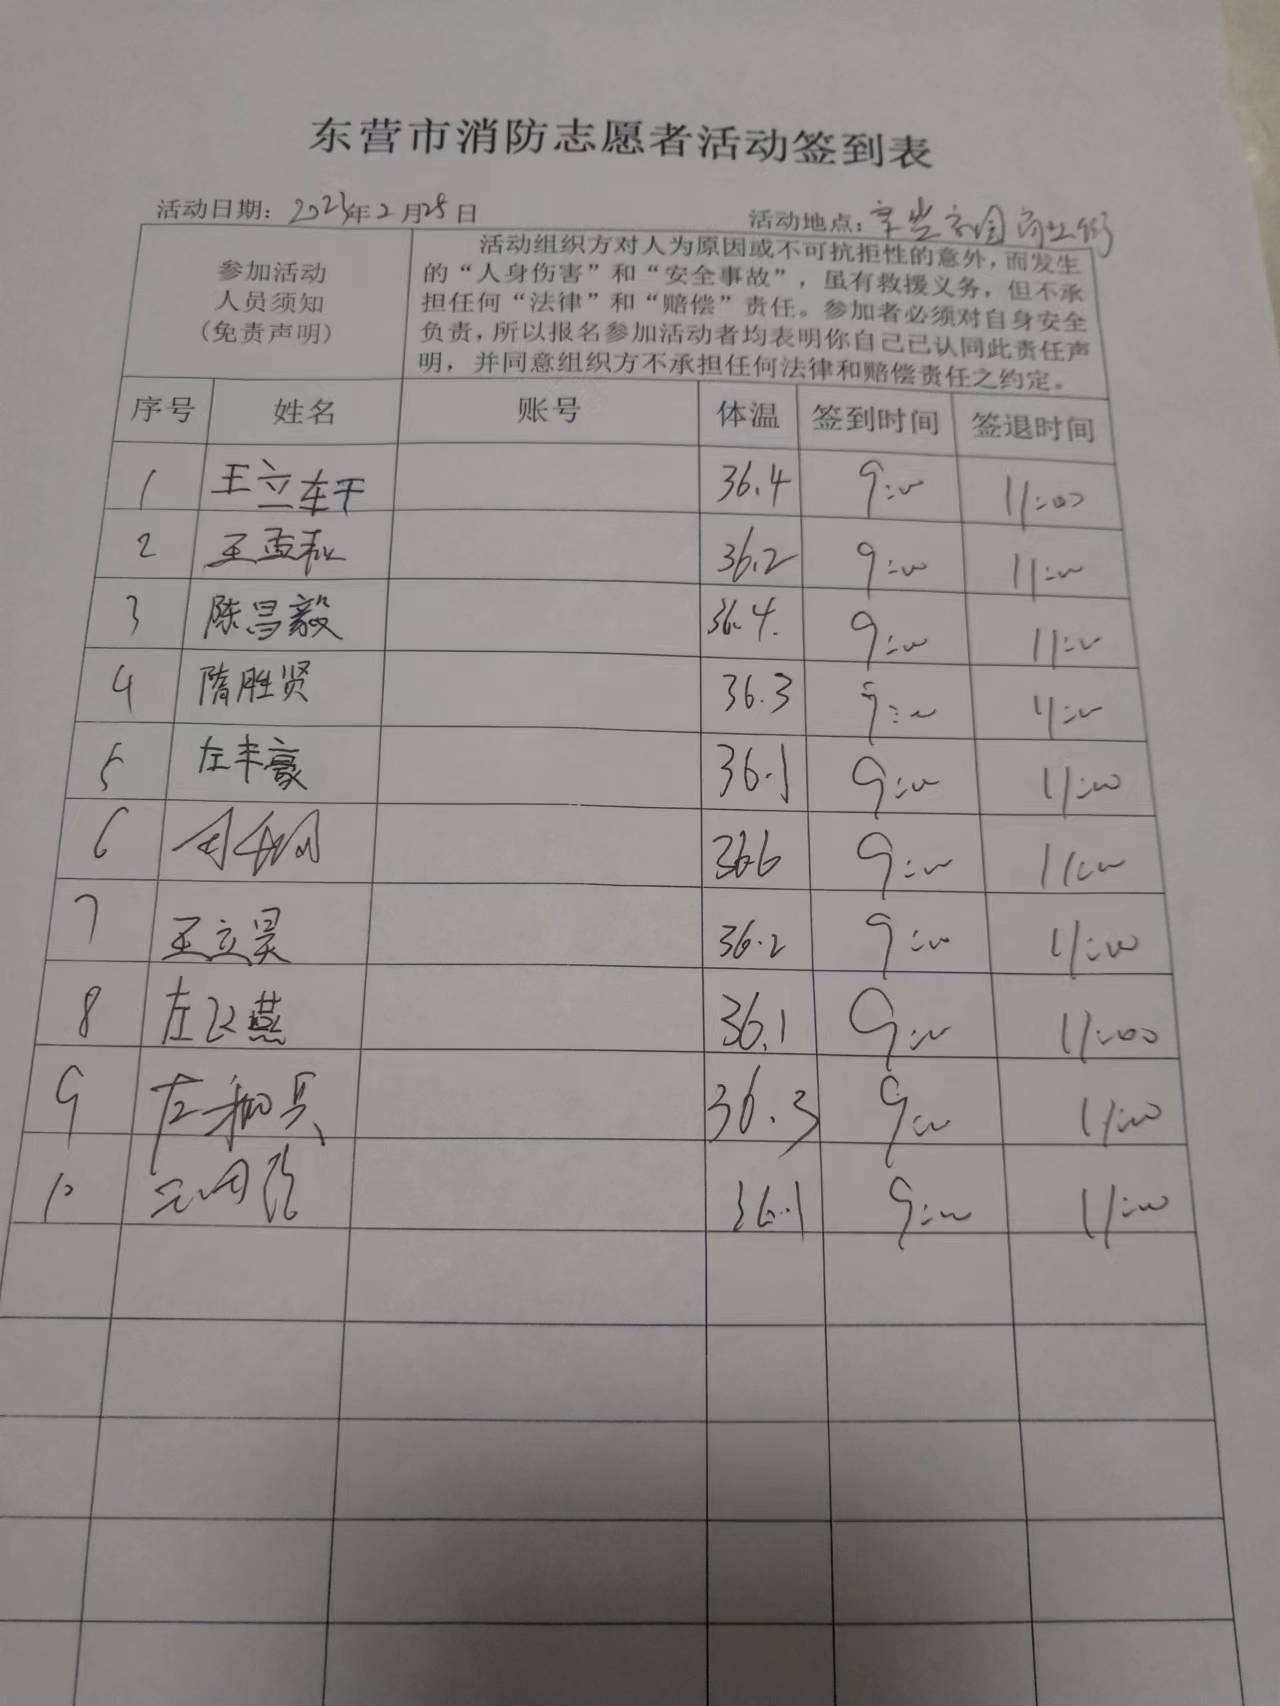 东营市消防志愿者活动签到表
活动日期：2023年2月25日 活动地点：
参加活动
人员须知
（免责声明）
活动组织方对人为原因或不可抗拒性的意外，而发生
的“人身伤害”和“安全事故”，虽有救援义务，但不承
担任何“法律”和“赔偿”责任。参加者必须对自身安全
负责，所以报名参加活动者均表明你自己已认同此责任声
明，并同意组织方不承担任何法律和赔偿责任之约定。
序号 姓名 账号 体温 签到时间 签退时间
1 王立 36.4 9:00 11:00
2 王孟 36.2 9:00 11:00
3 陈昌毅 36.4 9:00 11:00
4 隋胜贤 36.3 9:00 11:00
5 左丰豪 36.1 9:00 11:00
6 36.6 9:00 11:00
7 王立昊 36.2 9:00 11:00
8 左飞燕 36.1 9:00 11:00
9 左 36.3 9:00 11:00
10 36.1 9:00 11:00